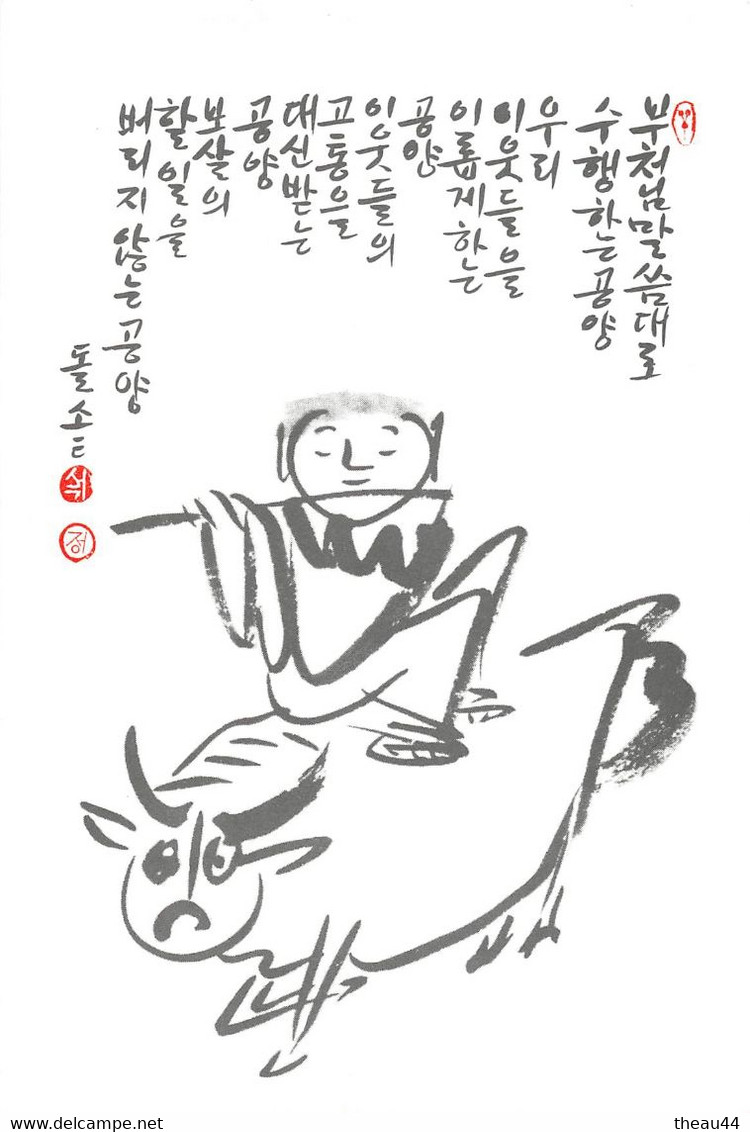 부처님말씀대로
수행하는공양
우리
이웃들을
이롭게하는
공양
이웃들의
고통을
대신받는
공양
보살의
할일을
버리지않는공양
돌소
정
www.delcampe.net
theau44